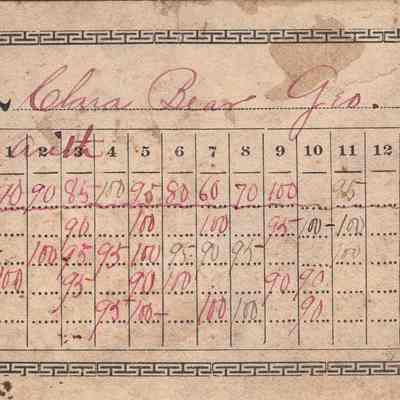 Clara Bear Geo.
Arith
1 2 3 4 5 6 7 8 9 10 11 12
90 85 100 95 80 60 70 100 95
90 100 100 95 100 100
100 95 95 100 95 90 95 100
100 95 90 100 90 90
95 100 100 100 90